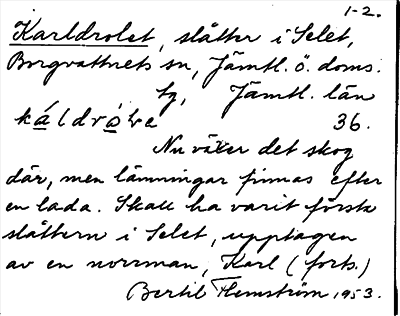 1-2.
Karldrolet, slåtter i Selet,
Borgvattnets sn, Jämtl. ö. doms.
hg, Jämtl. län
káldróle 36.
Nu växer det skog
där, men lämningar finnas efter
en lada. Skall ha varit första
slåttern i Selet, upptagen
av en norrman, Karl (forts.)
Bertil Flemström, 1953.